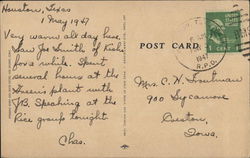 Houston, Texas
1 May 1947
Very warm all day here.
Saw Joe Smith of
for a while. Spent
several hours at the
plant with
J.B. Speaking at the
Rice group tonight.
Chas.
POST CARD
1947
R.P.O.
1 CENT 1
Mrs. C. H. Troutman
900 Sycamore
Creston,
Iowa.